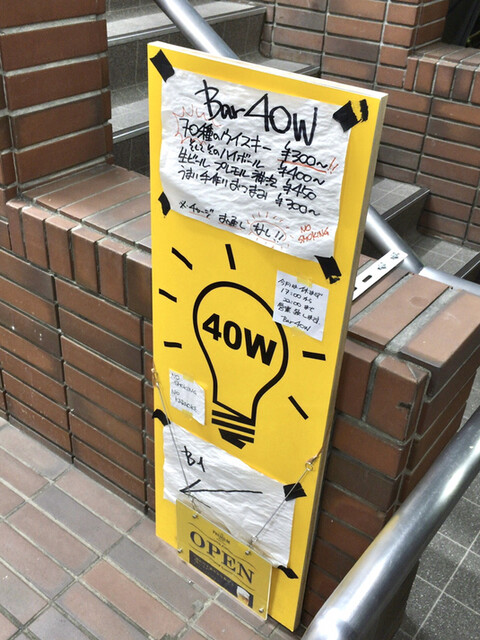 Bar 40W
70種のウイスキー ¥300〜!!
そしてそのハイボール ¥400〜
生ビール プレモル 補充 ¥450
うまい手作りおつまみ ¥300〜
※チャージ お通し なし!!
NO SMOKING
17:00から
22:00まで
Bar 40W
40W
NO SMOKING
B1
OPEN